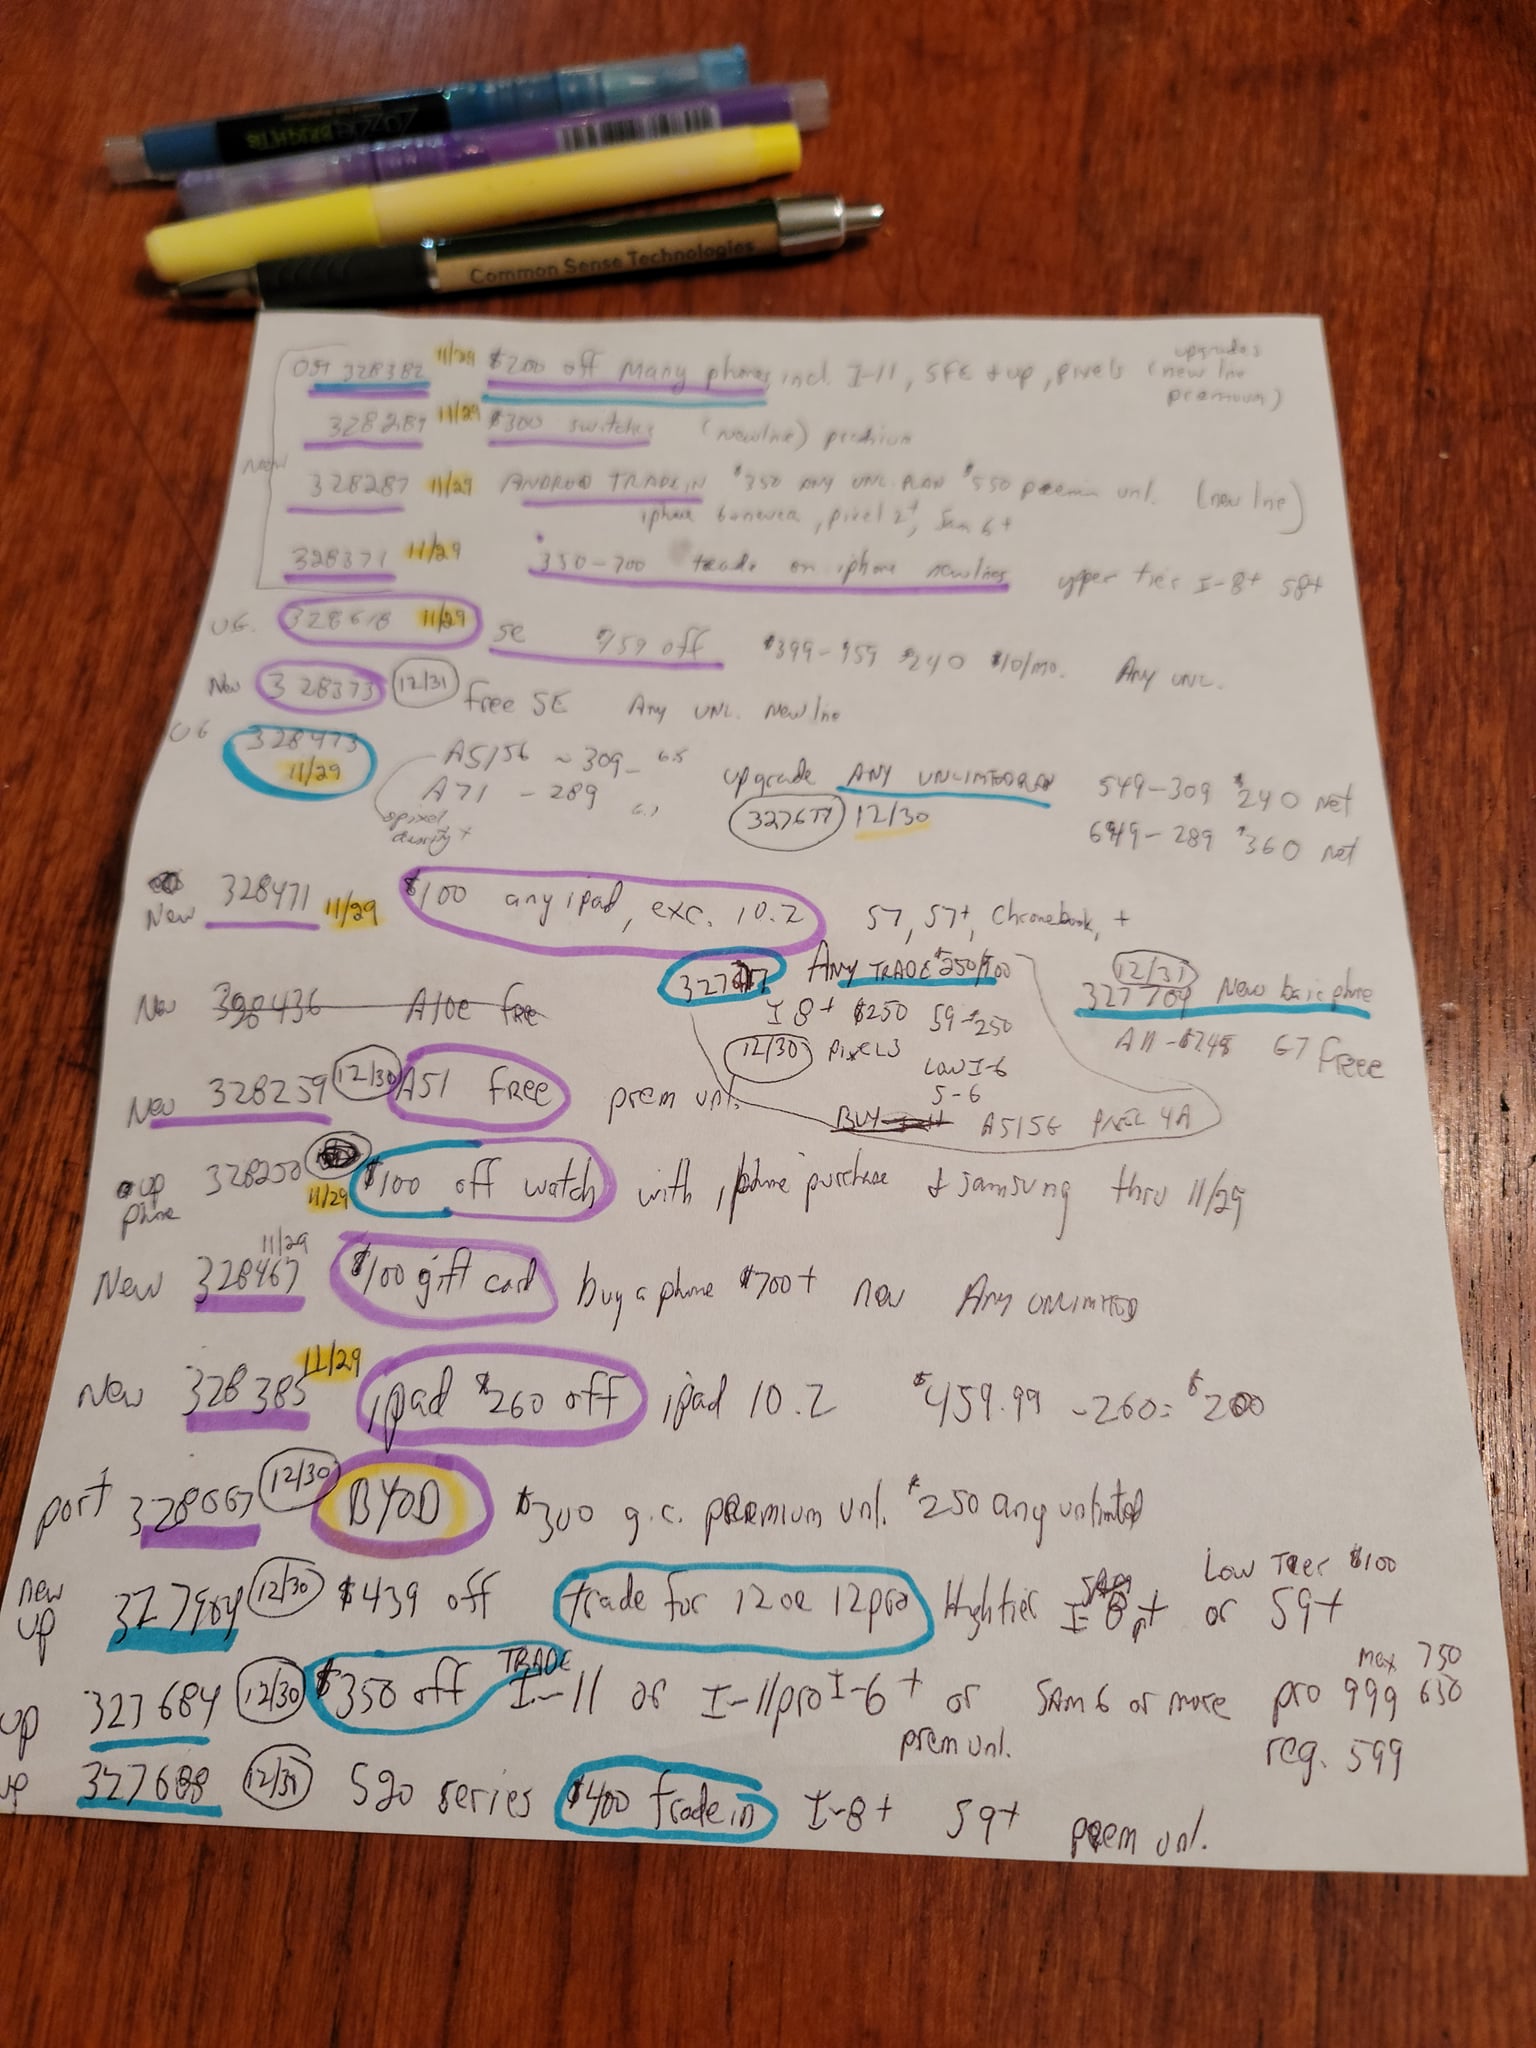 BRIGHTS
Common Sense Technologies
OST 328382 11/29 $200 off Many phones incl. I-11, SFE + up, pixels (new line
upgrades
premium)
328289 11/29 $300 switches (newline) premium
New
328287 11/29 ANDROID TRADE IN $350 ANY UNL. PLAN $550 premium unl. (new line)
iphone 6 or newer, pixel 2+, Sam 6+
328371 11/29 350-700 trade on iphone newlines upper tier I-8+ S8+
UG. 328618 11/29 SE $159 off $399-159 $240 $10/mo. Any UNL.
New 328373 12/31 free SE Any UNL. New line
UG 328473 11/29
A515G - 309- 6.5
A71 - 289 6.7
pixel
density +
upgrade ANY UNLIMITED 549-309 $240 net
327677 12/30
649-289 $360 net
New 328471 11/29 $100 any ipad, exc. 10.2 S7, S7+, Chromebook, +
ANY TRADE $250/100
I 8+ $250 S9-$250
12/30 Pixel 3
Low I-6
S-6
BUY A515G PIXEL 4A
12/31
327709 New basic phone
All -$248 G7 free
New 328436 A10e free
New 328259 12/30 A51 free prem unl.
up phone 328250 11/29 $100 off watch with iphone purchase + samsung thru 11/29
New 328467 11/29 $100 gift card buy a phone $700+ new Any UNLIMITED
New 328385 11/29 ipad $260 off ipad 10.2 $459.99 -260= $200
port 328667 12/30 BYOD $300 g.c. premium unl. $250 any unlimited
new up 327904 12/30 $439 off trade for 12 or 12pro High tier I-8+ or S9+
Low Tier $100
up 327684 12/30 $350 off TRADE I-11 or I-11pro I-6+ or SAM 6 or more pro 999 650
max 750
prem unl.
reg. 599
up 327688 12/31 S20 series $400 trade in I-8+ S9+ prem unl.